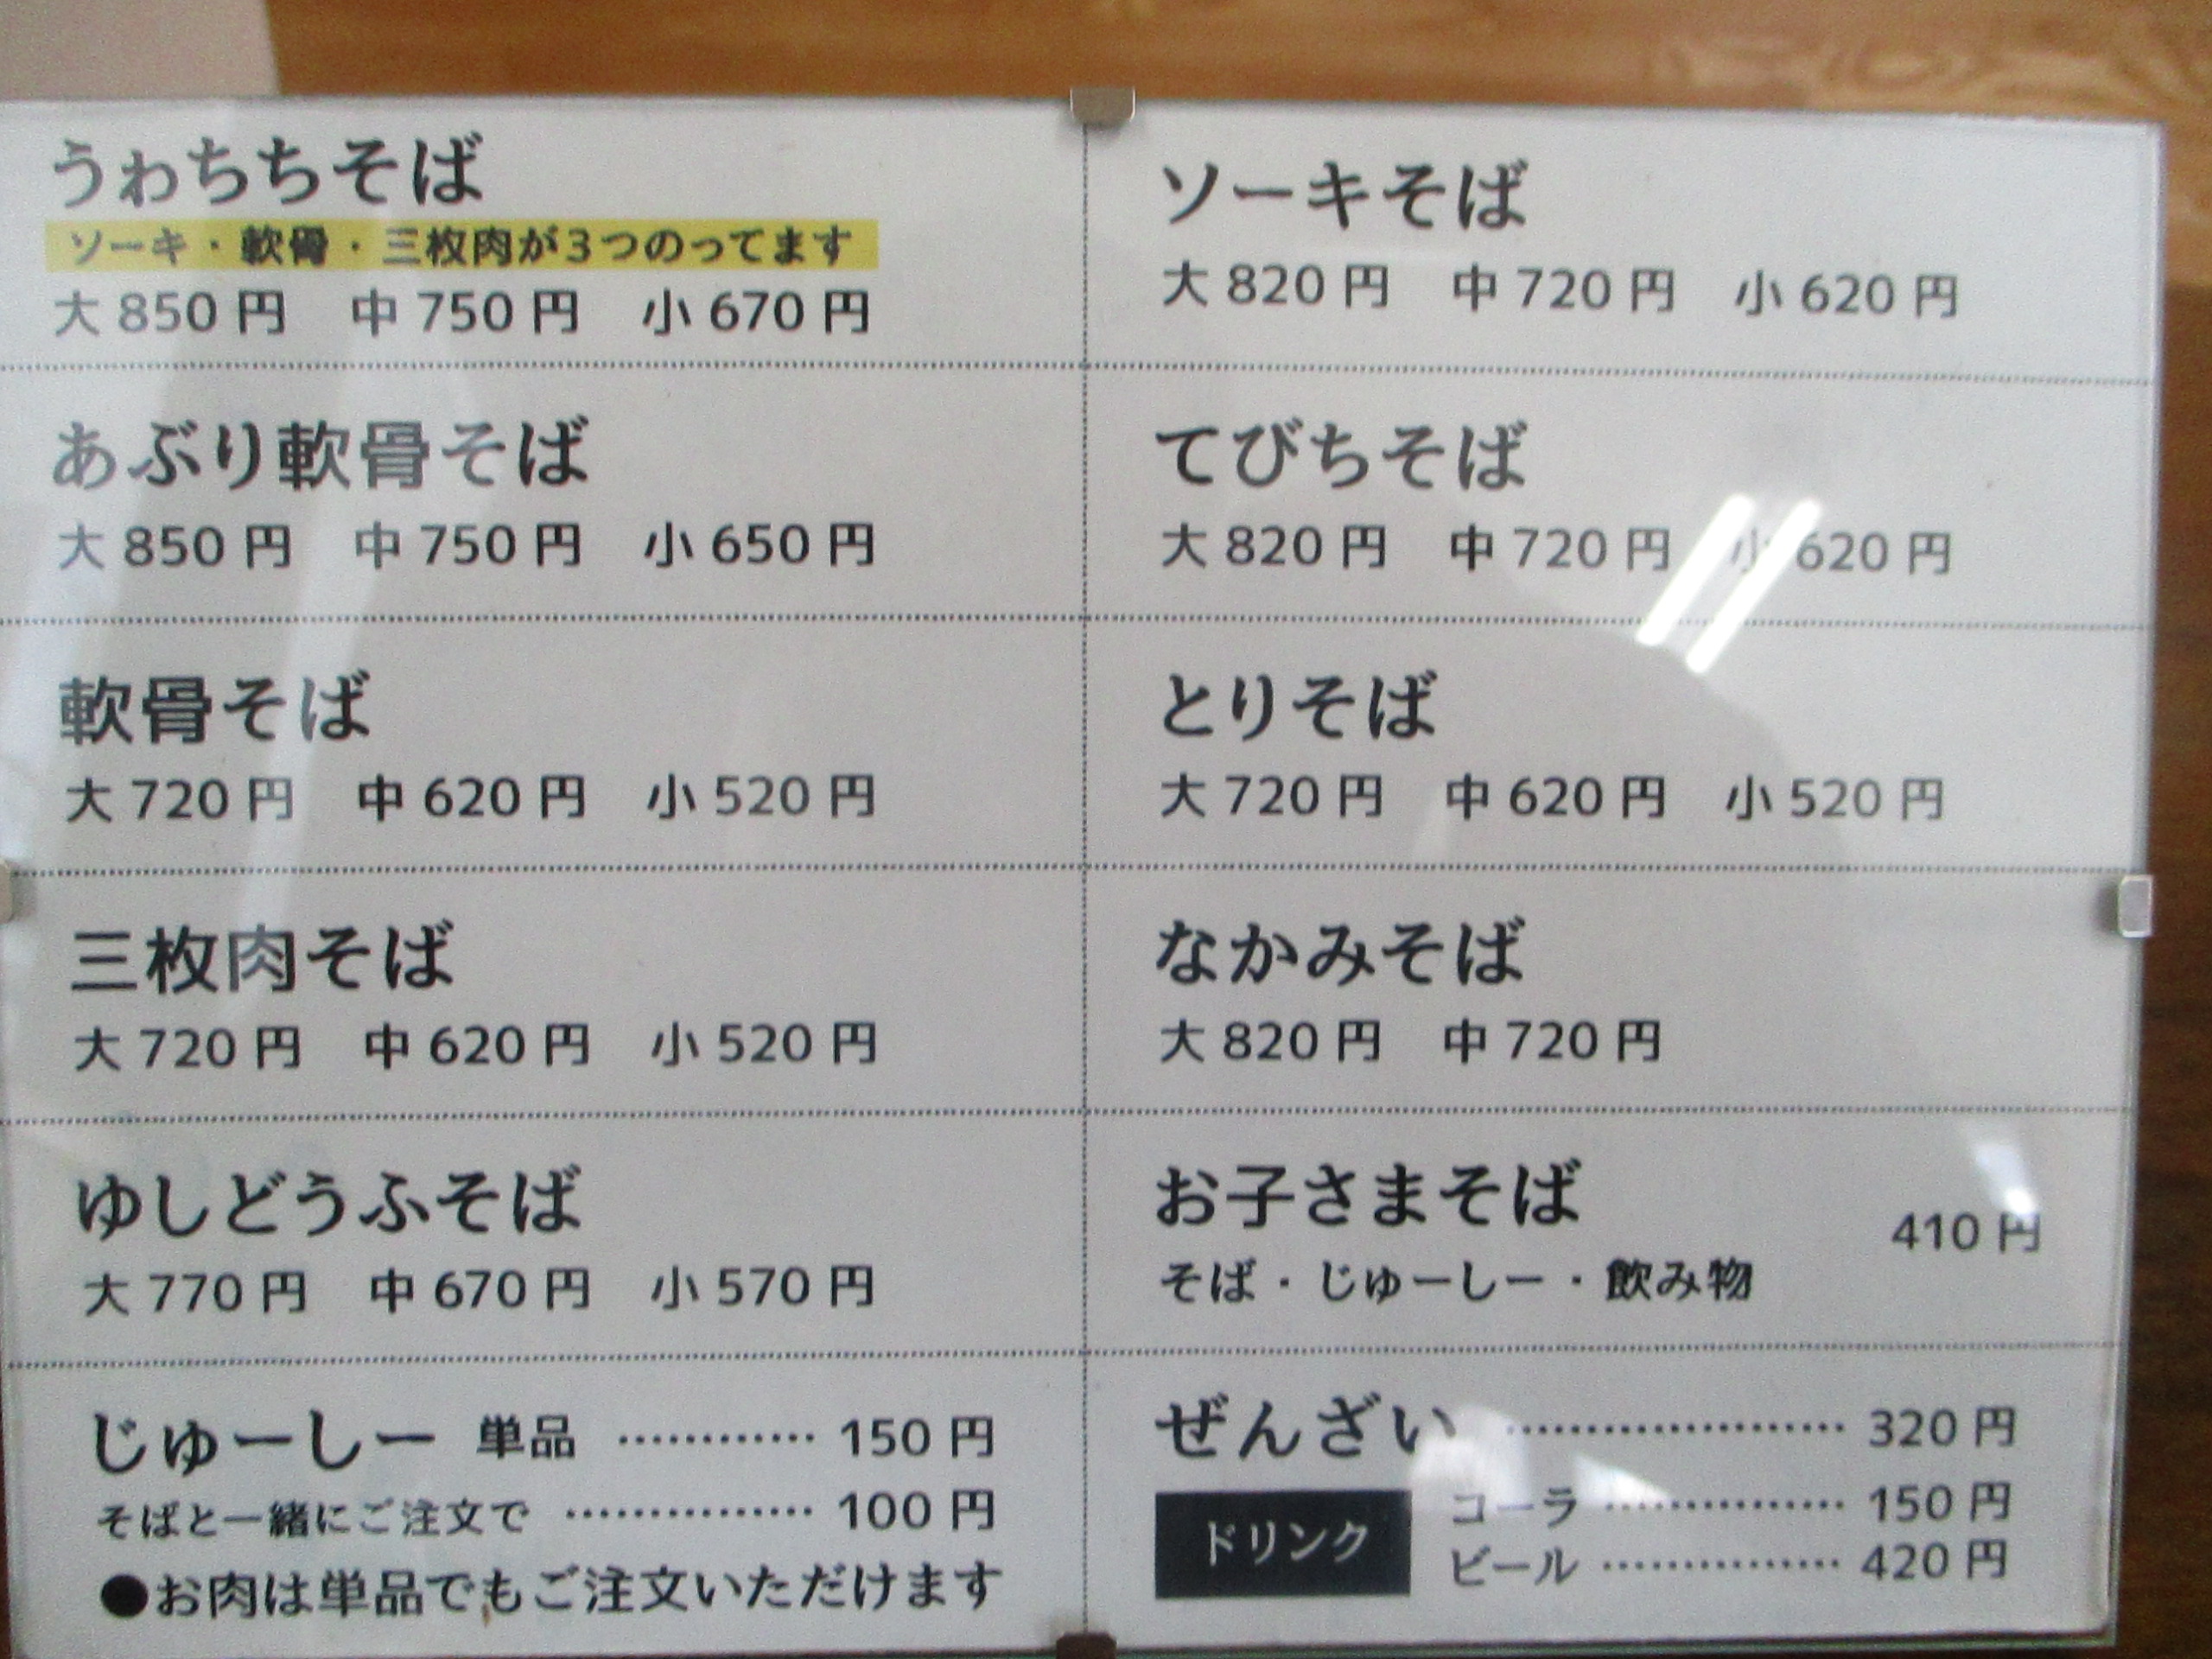 うわちちそば
ソーキ・軟骨・三枚肉が3つのってます
大850円 中750円 小670円
あぶり軟骨そば
大850円 中750円 小650円
軟骨そば
大720円 中620円 小520円
三枚肉そば
大720円 中620円 小520円
ゆしどうふそば
大770円 中670円 小570円
じゅーしー 単品 ………… 150円
そばと一緒にご注文で …………… 100円
●お肉は単品でもご注文いただけます
ソーキそば
大820円 中720円 小620円
てびちそば
大820円 中720円 小620円
とりそば
大720円 中620円 小520円
なかみそば
大820円 中720円
お子さまそば
そば・じゅーしー・飲み物 410円
ぜんざい ………………… 320円
ドリンク
コーラ …………… 150円
ビール …………… 420円